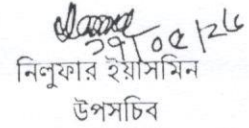 ২৭/০৫/২৬
নিলুফার ইয়াসমিন
উপসচিব